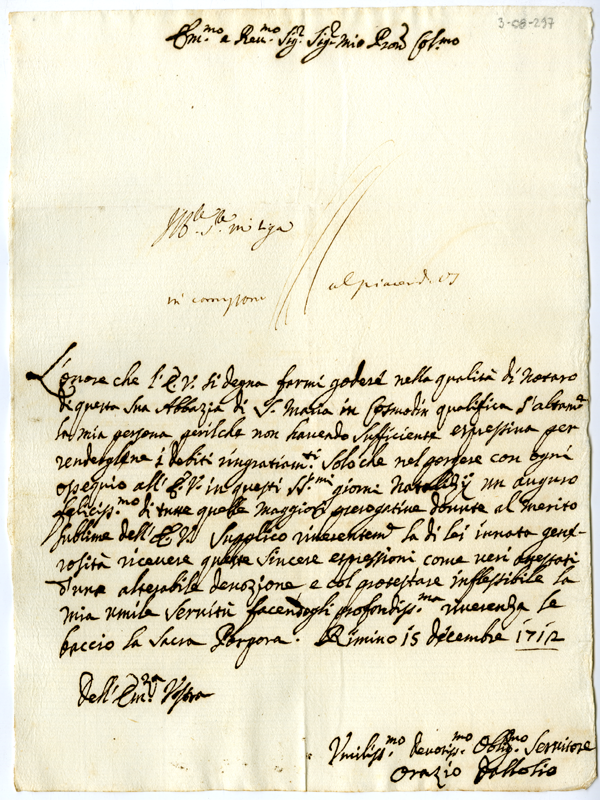 3-08-297
Em.mo e Reu.mo Sig.r Sig.r mio Pron Col.mo
in al piacer di
L'onore che l'E.V. si degna farmi godere nella qualità di Notaro
di questa Sua Abbazia di S. Maria in Cosmodin qualifica d'altam.e
la mia persona perilche non havendo sufficiente espressiua per
rendergliene i debiti ringratiam.ti Solo che nel porgere con ogni
ossequio all'E.V. in questi SS.mi giorni Natalizij un auguro
feliciss.mo di tutte quelle maggiori prerogatiue douute al merito
sublime dell'E.V. Supplico riuerentem.e la di lei innata gene-
rosità riceuere queste sincere espressioni come ueri attestati
d'una alterabile deuozione e col protestare inflessibile la
mia umile seruitù facendogli profondiss.ma riuerenza le
baccio la Sacra Porpora. Rimino 15 decembre 1712
Dell'Em.za Vostra
Vmiliss.mo deuotiss.mo Oblig.mo Seruitore
Orazio